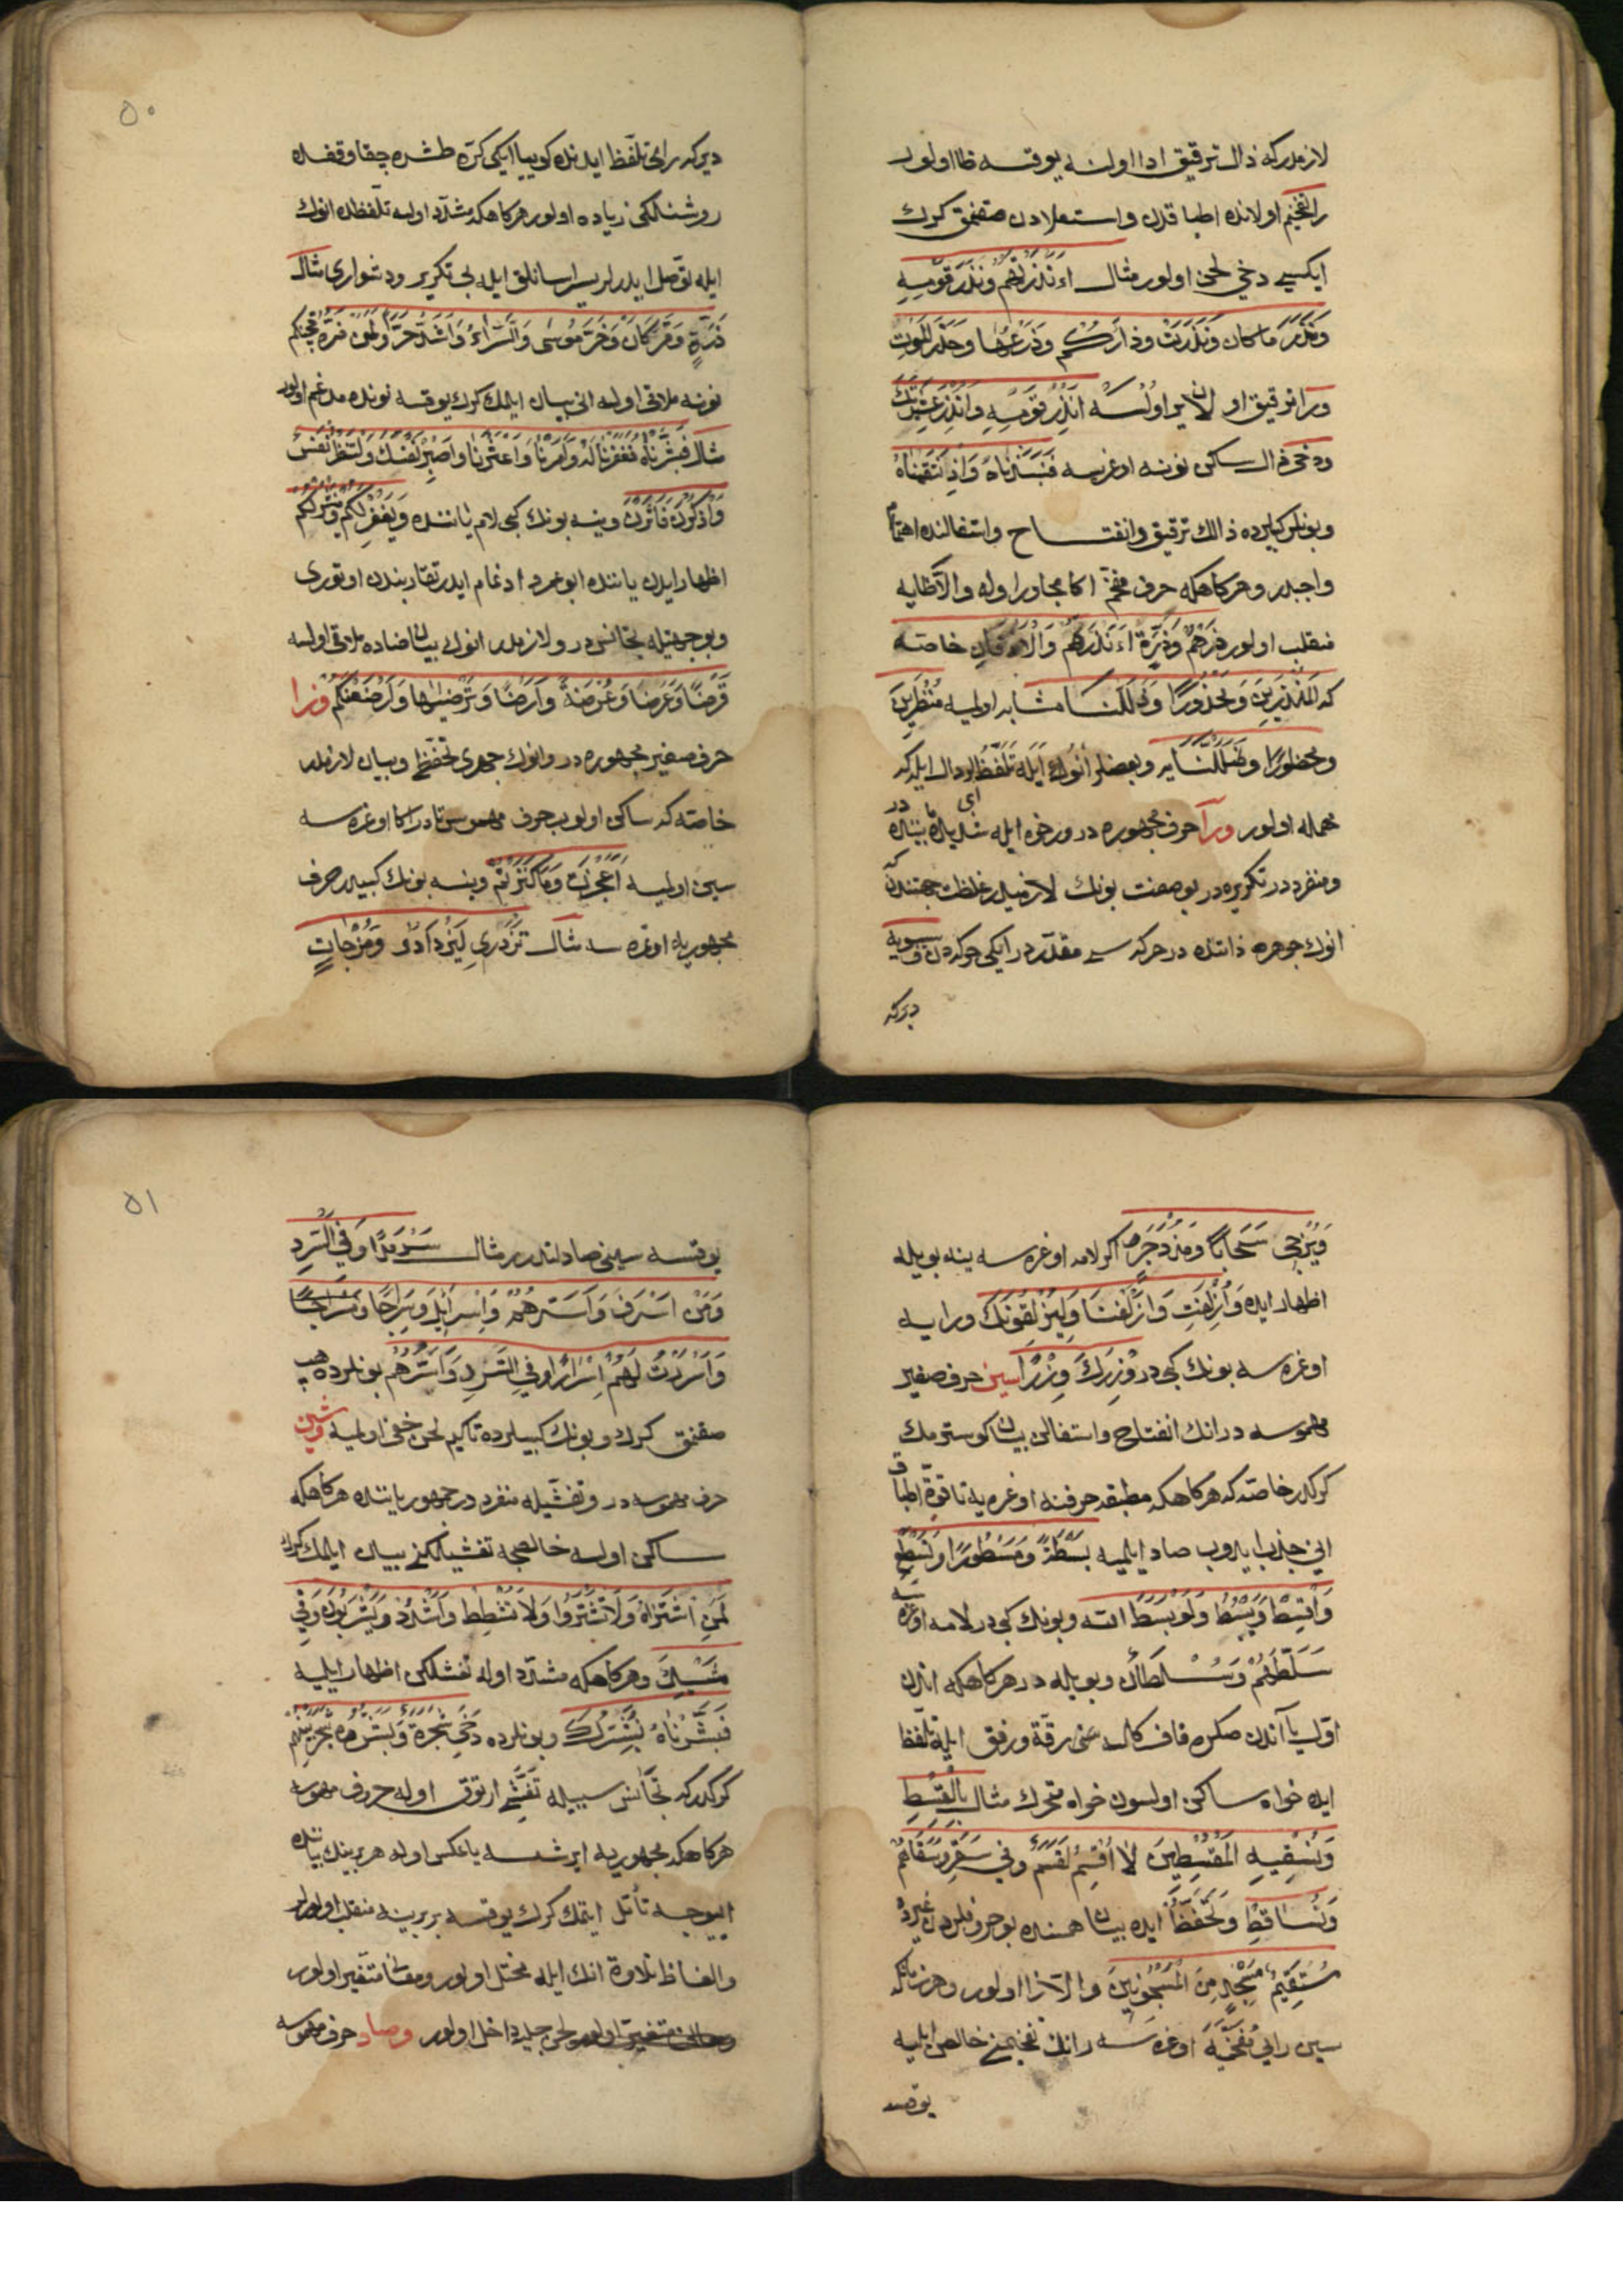 لازمدركه ذال ترقيق ادا اولنه يوقسه ظا اولور
را تفخيم اولانده اطباقدن واستعلادن صقنمق كرك
ايكسى دخى لحن اولور مثال ءَاَنْذَرْتَهُمْ وَنَذَرَ قَوْمِهِ
وَنَذَرَ ما كان وَنَذَرْتُ وَذَرْعُهَا وَحَذَرَ الْمَوْتِ
ورا ترقيق اولسه اَنْذِرْ قَوْمِهِ وَاَنْذِرْ عَشِيرَتَكَ
ودخى ذال ساكن نونه اوغرسه فَنَبَذْنَاهُ وَاِذْ نَتَقْنَاهُ
وبونلر كبيلرده ذالك ترقيق وانفتاح واستفالنده اهتمام
واجبدر وهركاهكه حرف مفخّم اكا مجاور اوله والّا ظايه
منقلب اولور ذَرْهُمْ وَذَرَّةٍ ءَاَنْذَرْتَهُمْ وَالْاَذْقَانِ خاصّه
كه الْمُنْذَرِينَ وَمَحْذُورًا وَذَلَّلْنَا مشابه اولميه مُنْظَرِينَ
ومحظورًا وَظَلَّلْنَا يه وبعضلر انوك ايله تلفّظ ايدر دال ايله كه
مهمله اولور ورا حرف مجهوره در ورخوه ايله شديده بيننده در
ومنفرددر تكريره در بو صفت بونك لازميدر غلظت جهتندن كه
انوك جوهره ذاتنده در حركه سى مقدّردر ايكى حركه دن وسيبويه
ديركه
٥٠
ديركه رايى تلفّظ ايدنده كوييا ايكى كرّه طشره چقا وقفده
روشنلكى زياده اولور هركاهكه مشدّد اولسه تلفّظده انوك
ايله توصّل ايدرلر يسر اسانلق ايله بى تكرير ودشوارى مثال
ذَرَّةٍ وَقَرَّ كَانَ وَخَرَّ مُوسٰى وَالسَّرَّاءُ وَاَشَدُّ حَرًّا
نونه ملاقى اولسه انى بيان ايلمك كرك يوقسه نونده مدغم اولور
مثال فَبَشَّرْنَاهُ فَغَفَرْنَا لَهُ وَاَمَرْنَا وَاَعْثَرْنَا وَاصْبِرْ نَفْسَكَ وَلْتَنْظُرْ نَفْسٌ
وينه بونك كبى لام ياننده وَيَغْفِرْ لَكُمْ وَيَنْشُرْ لَكُمْ
اظهار ايدن ياننده ابوعمرو ادغام ايدر تقاربندن اوتورى
وبو جهتيله تجانسدر ولازمدر انوك بيان ضاده ملاقى اولسه
قَرْضًا وَعَرْضًا وَعُرْضَةً وَاَرْضًا وَتَرْضَيٰهَا وَاَرْضَعْنَكُمْ وزا
حرف صفير مجهوره در وانوك جهرى تحفّظ وبيان لازمدر
خاصّه كه ساكن اولوب حرف مهموسى تا در اكا اوغره سه
سين اولميه اَعَجَزْتُ وَمَا كَنَزْتُمْ وينه بونك كبيدر حرف
مجهوريله اوغره سه مثال تَزْدَرِى لِيَزْدَادُوا وَمُزْجَاتٍ
وَيُزْجِى سَحَابًا وَمُزْدَجَرٌ اكر لامه اوغره سه ينه بويله
اظهار ايده وَاُزْلِفَتِ وَاَزْلَفْنَا وَلَيُزْلِقُونَكَ ورايه
اوغره سه بونك كبى در وِزْرَكَ وِزْرًا سين حرف صفير
مهموسه در انك انفتاح واستفالن بيان كوسترمك
كركدر خاصّه كه هركاهكه مطبقه حرفنه اوغره يه تا قوّة اطباق
انى جذب ايدوب صاد ايلميه بَسْطَةً وَمَسْطُورًا وَتَسْطِعْ
وَاَقْسِطْ وَيَبْسُطُ وَلَوْ بَسَطَ اللّه وبونك كبى در لامه اوغره سه
سَلَّطَهُمْ وَسُلْطَانٌ وبويله در هركاهكه اندن
اوّل يا اندن صكره قاف كلسه سنى رقّة ورفق ايله تلفّظ
ايده خواه ساكن اولسون خواه متحرك مثال بِالْقِسْطِ
وَنُسْقِيهِ الْمُقْسِطِينَ لَا اُقْسِمُ لَقَسَمٌ وفى سَقَرَ وَسَقَاهُمْ
وَتُسَاقِطْ وَلَحْفَظًا ايده بيان همسنده بو حروفلردن غيرده
مُسْتَقِيمٌ مَسْجِدٍ مِنَ الْمَسْجُونِينَ والّا زا اولور وهر زمانكه
سين رايى مفخّمه اوغره سه رانك تفخيمن خالص ايليه
يوقسه
٥١
يوقسه سينى صادلندرر مثال سَرْمَدًا وَفِى السَّرْدِ
وَمَنْ اَسْرَفَ وَاَسَرَّهُمْ وَاِسْرَائِلَ وَسِرَاجًا
وَاَسْرَرْتُ لَهُمْ اِسْرَارًا وَفِى السَّرْدِ وَاَسَرَّهُمْ بونلرده هپ
صقنمق كرك وبونك كبيلرده تاكيم لحن خفى اولميه وشين
حرف مهموسه در وتفشّيله منفرد در جمهور ياننده هركاهكه
ساكن اولسه خالصجه تفشيلكنى بيان ايلمك كرك
لَمَنِ اشْتَرَاهُ وَلَا تَشْتَرُوا وَلَا تُشْطِطْ وَاشْدُدْ وَيَشْرَبُونَ وَفِى
مَشْيِكَ وهركاهكه مشدّد اوله تفشلكن اظهار ايليه
فَبَشَّرْنَاهُ نُبَشِّرُكَ وبونلرده دخى شَجَرَةً وَبَشَّرُوهُ شَجَرَ بَيْنَهُمْ
كركدركه تجانس سببيله تفشّى ارتوق اوله حروف مهموسه
هركاهكه مجهوريه ايرشسه يا عكس اوله هر بيرينك بياننده
ايوجه تأمّل ايتمك كرك يوقسه بر بيرينه منقلب اولور
والفاظ تلاوة انك ايله مختل اولور ومعنا متغيّر اولور
ومعانى متغير اولور لحن جليده داخل اولور وصاد حرف مهموسه